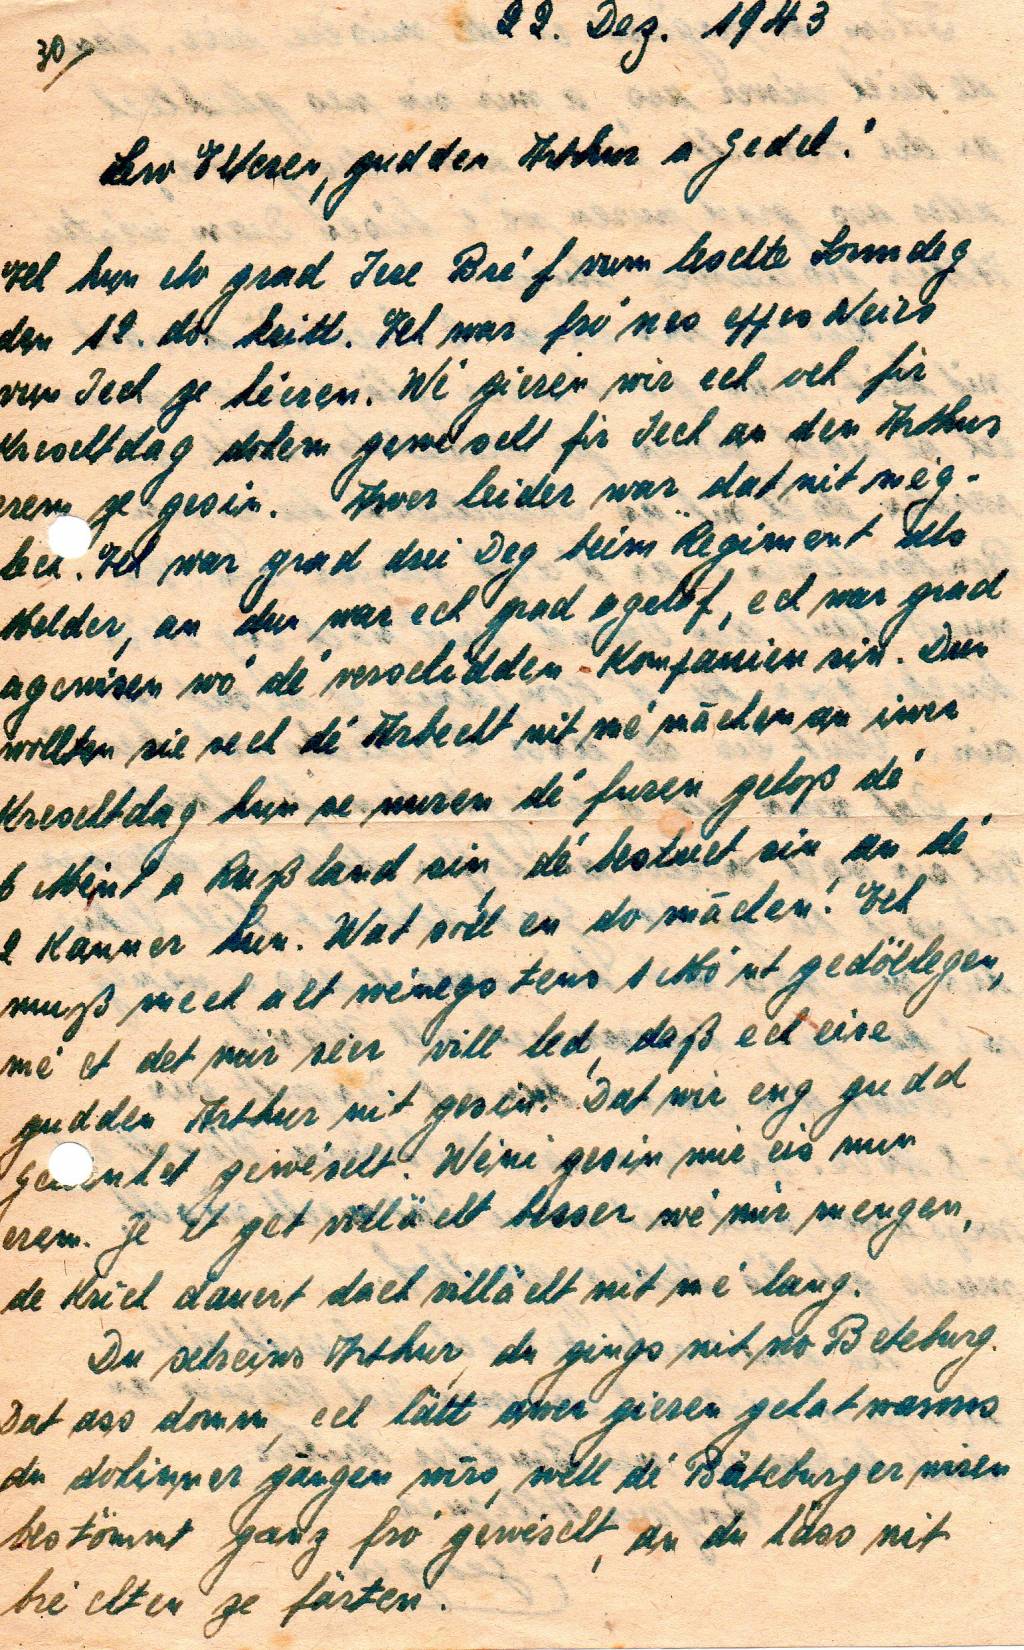 22. Dez. 1943
30/
Lew Elteren, gudden Arthur a Gedel!
Ech hun elo grad Iere Bréf vum leschte Sonndeg
den 12. ds. kritt. Ech war fró nes eppes Neies
vun Iech ze héieren. Wé gieren wir ech och fir
Kreschtdag dohém gewéscht fir Iech an den Arthur
erem ze gesin. Awer leider war dat nit még-
lech. Ech war grad drei Deg beim Regiment als
Melder, an dun war ech grad agelóf, ech war grad
agewisen wó dé verschidden Kompanien sin. Dun
wollten sie sech dé Arbecht nit mé máchen an iwer
Kreschtdag hun se nuren dé furen geloß dé
6 Mént a Rußland sin, dé bestuet sin an dé
2 Kanner hun. Wat soll en do máchen! Ech
muß mech alt wéinegstens 1 Mónt gedöllegen,
mé et det mir séier vill led, daß ech eise
gudden Arthur nit gesin. Dat wir eng gudd
gewéscht. Wéini gesin mir eis nun
erem. Je et get villächt besser wé mir mengen,
de Krich dauert dach villächt nit mé lang.
Du schreims Arthur, du gings nit no Beteburg.
Dat ass domm, ech hätt awer gieren gehat wanns
du dohinner gängen wärs, well dé Bäteburger wiren
bestömmt ganz fró gewéscht, an du hass nit
bréichten ze färten.